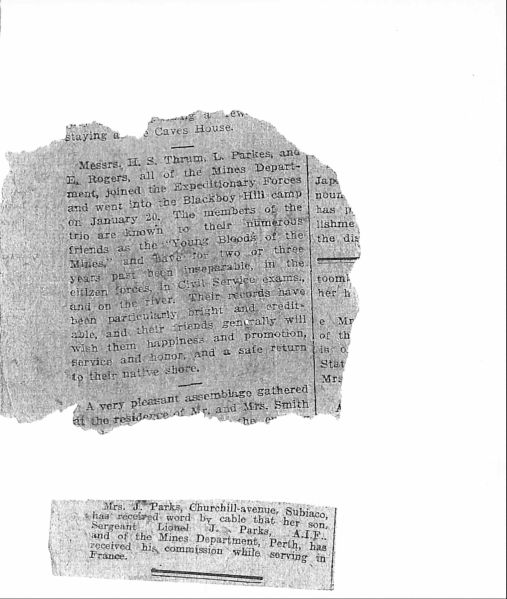 staying a Caves House.
Messrs. H. S. Thrum, L. Parkes, and
E. Rogers, all of the Mines Depart-
ment, joined the Expeditionary Forces
and went into the Blackboy Hill camp
on January 20. The members of the
trio are known to their numerous
friends as the "Young Bloods of the
Mines," and have for two or three
years past been inseparable, in the
citizen forces, in Civil Service exams.,
and on the river. Their records have
been particularly bright and credit-
able, and their friends generally will
wish them happiness and promotion,
service and honor, and a safe return
to their native shore.
A very pleasant assemblage gathered
at the residence of Mr. and Mrs. Smith
the
Jap
noun
has
lishme
the dis
toom
her h
e Mr
of th
is o
Stat
Mrs
Mrs. J. Parks, Churchill-avenue, Subiaco,
has received word by cable that her son,
Sergeant Lionel J. Parks, A.I.F.,
and of the Mines Department, Perth, has
received his commission while serving in
France.